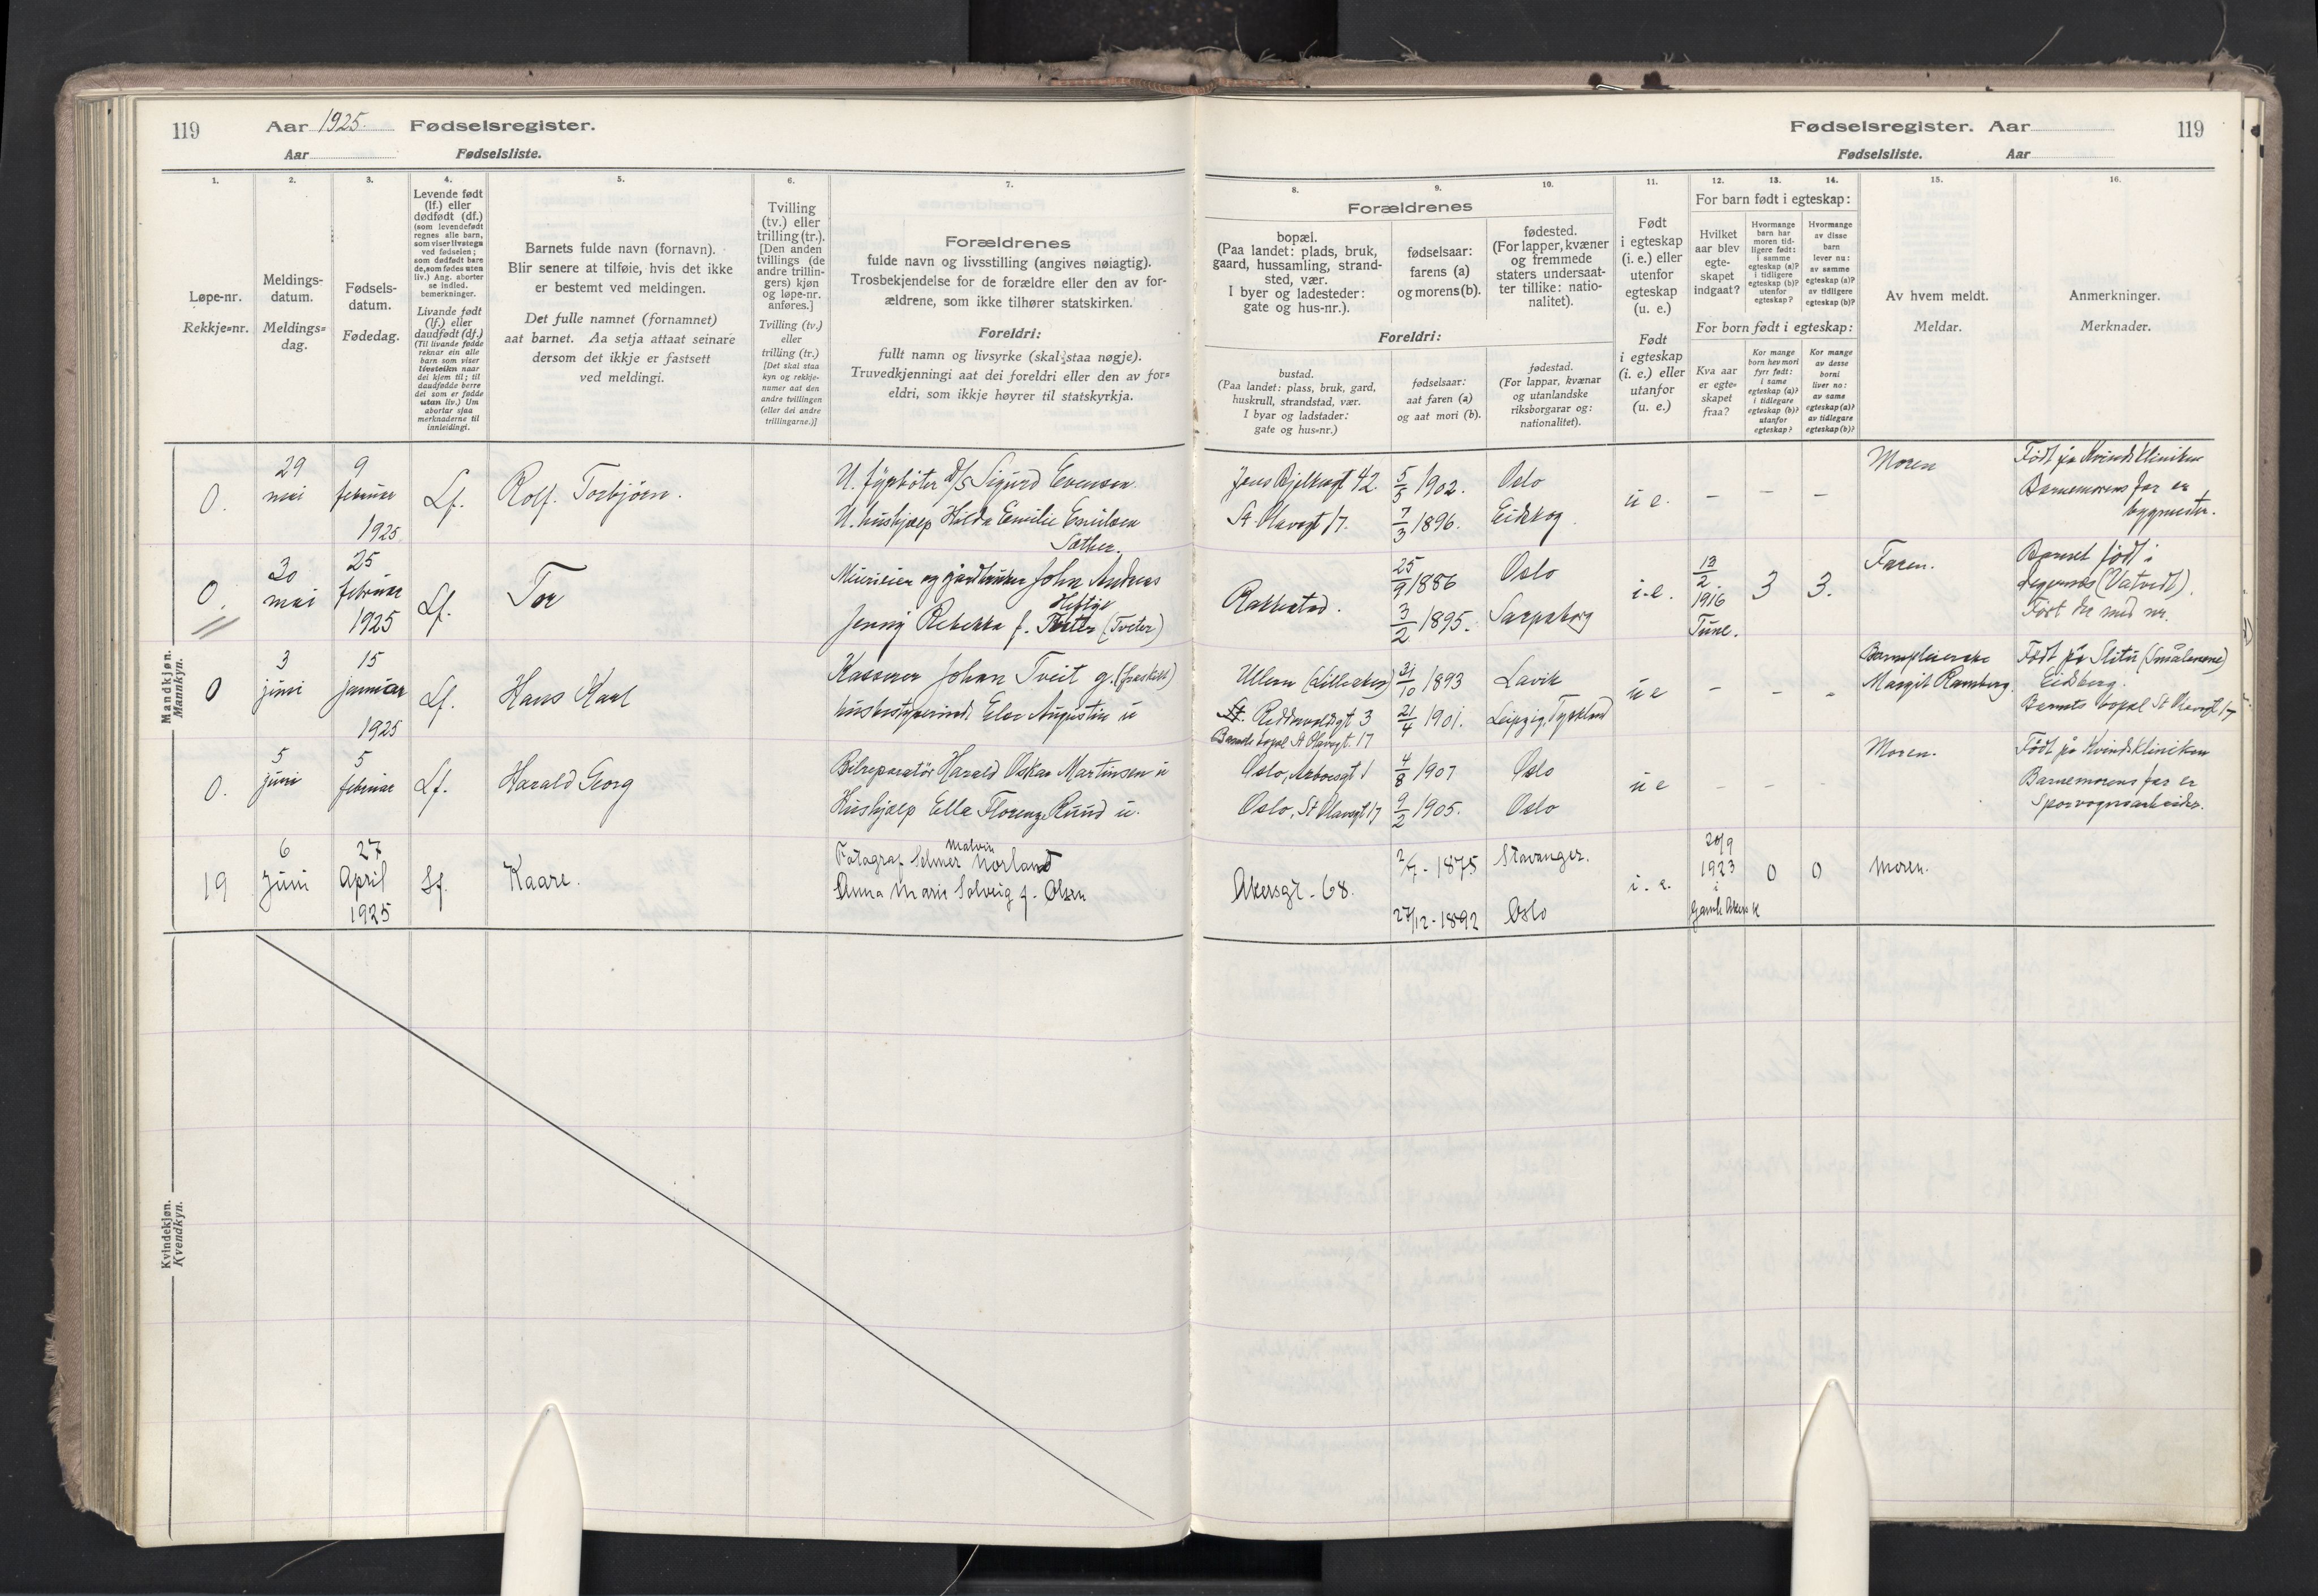 119
Aar 1925. Fødselsregister.
Aar Fødselsliste.
Fødselsregister. Aar
119
Fødselsliste. Aar
1.
Løpe-nr.
Rekkje=nr.
2.
Meldings-
datum.
Meldings=
dag.
3.
Fødsels-
datum.
Fødedag.
4.
Levende født
(lf.) eller
dødfødt (df.)
(som levendefødt
regnes alle barn,
som viser livstegn
ved fødselen;
som dødfødt bare
de, som fødes uten
liv.) Ang. aborter
se indled.
bemerkninger.
Livande født
(lf.) eller
daudfødt (df.)
(Til livande fødde
reknar ein alle
barn som viser
livsteikn naar
dei kjem til; til
daudfødde berre
dei som er fødde
utan liv.) Um
abortar sjaa
merknaderne til
innleidingi.
5.
Barnets fulde navn (fornavn).
Blir senere at tilføie, hvis det ikke
er bestemt ved meldingen.
Det fulle namnet (fornamnet)
aat barnet. Aa setja attaat seinare
dersom det ikkje er fastsett
ved meldingi.
6.
Tvilling
(tv.) eller
trilling (tr.).
[Den anden
tvillings (de
andre trillin-
gers) kjøn
og løpe-nr.
anføres.]
Tvilling (tv.)
eller
trilling (tr.)
[Det skal staa
kyn og rekkje-
numer aat den
andre tvillingen
(eller dei andre
trillingarne.)]
7.
Forældrenes
fulde navn og livsstilling (angives nøiagtig).
Trosbekjendelse for de forældre eller den av for-
ældrene, som ikke tilhører statskirken.
Foreldri:
fullt namn og livsyrke (skal staa nøgje).
Truvedkjenningi aat dei foreldri eller den av for=
eldri, som ikkje høyrer til statskyrkja.
8.
Forældrenes
bopæl.
(Paa landet: plads, bruk,
gaard, hussamling, strand-
sted, vær.
I byer og ladesteder:
gate og hus-nr.).
Foreldri:
bustad.
(Paa landet: plass, bruk, gard,
huskrull, strandstad, vær.
I byar og ladstader:
gate og hus=nr.)
9.
fødselsaar:
farens (a)
og morens (b).
fødselsaar:
aat faren (a)
og aat mori (b).
10.
fødested.
(For lapper, kvæner
og fremmede
staters undersaat-
ter tillike: natio-
nalitet).
fødestad.
(For lappar, kvænar
og utanlandske
riksborgarar og:
nationalitet).
11.
Født
i egteskap
(i. e.) eller
utenfor
egteskap
(u. e.)
Født
i egteskap
(i. e.) eller
utanfor
(u. e.)
12. 13. 14.
For barn født i egteskap:
Hvilket
aar blev
egte-
skapet
indgaat?
Hvormange
barn har
moren tid-
ligere født:
i samme
egteskap (a)?
i tidligere
egteskap (b)?
utenfor
egteskap?
Hvormange
av disse
barn
lever nu:
av samme
egteskap (a)?
av tidligere
egteskap (b)?
For born født i egteskap:
Kva aar
er egte=
skapet
fraa?
Kor mange
born hev mori
fyrr født:
i same
egteskap (a)?
i tidlegare
egteskap (b)?
utanfor
egteskap?
Kor mange
av desse
borni
liver no:
av same
egteskap (a)?
av tidlegare
egteskap (b)?
15.
Av hvem meldt.
Meldar.
16.
Anmerkninger.
Merknader.
Mandkjøn.
Mannkyn.
0.
29
mai
9
februar
1925
Lf.
Rolf. Torbjørn.
U. fyrbøter D/S Sigurd Evensen
U. hushjælp Hilda Emilie Emilsen
Sæther.
Jens Bjelkesgt 42.
St. Olavsgt 17.
5/5 1902.
7/3 1896.
Oslo
Eidskog
u e.
– – –
Moren
Født på Kvindekliniken
Barnemorens far er
bygmester.
0.
30
mai
25
februar
1925
Lf.
Tor
Meierieier og gårdbruker John Andreas
Heftye
Jenny Rebekka f. Tveter (Tveter)
Rakkestad.
25/9 1886
3/2 1895.
Oslo
Sarpsborg
i.e.
13/2
1916
Tune.
3
3.
Faren.
Barnet født i
(Vatvedt).
Født her med nr.
0
3
juni
15
januar
1925
Lf.
Hans Karl
Kasserer Johan Tveit g. (fraskilt)
husbestyrerinde Else Augustin u
Ullern (Lilleaker)
St. Reddervoldsgt 3
Barnets bopæl St Olavsgt. 17
31/10 1893
21/4 1901.
Lavik
Leipzig, Tyskland
u e
– – –
Barnepleierske
Margit Ramberg.
Født på Slitu (Smålenene)
Eidsberg.
Barnets bopæl St Olavsgt 17
0.
5
juni
5
februar
Lf.
Harald Georg
Bilreparatør Harald Oskar Martinsen u
Hushjælp Ella Florence Ruud u.
Oslo, Arbosgt 1
Oslo, St Olavsgt 17
4/8 1907
9/2 1905.
Oslo
Oslo
u e
– – –
Moren.
Født på Kvindekliniken
Barnemorens far er
Sporvognsarbeider.
19
6
Juni
27
April
1925
Lf.
Kaare.
Malvin
Fotograf Selmer Norland
Anna Marie Solveig f. Olsen
Akersgt. 68.
2/7 - 1875
27/12 - 1892
Stavanger.
Oslo
i. e.
20/9
1923
i
Gamle Akers K
0
0
Moren.
Kvindekjøn.
Kvendkyn.